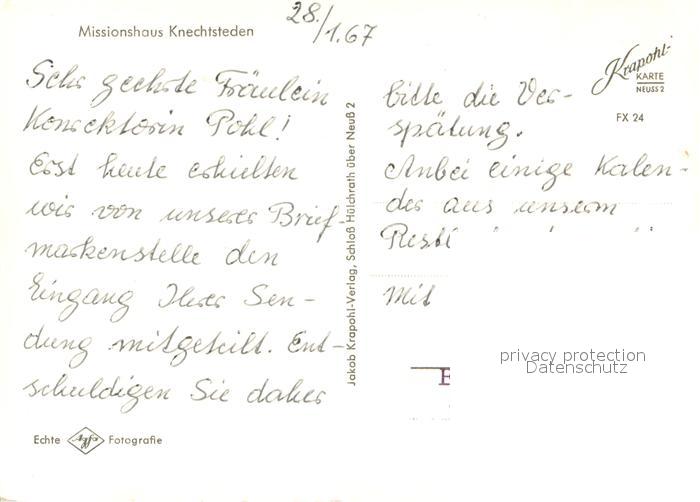 Missionshaus Knechtsteden
28./1.67
Sehr geehrte Fräulein
Konrektorin Pohl!
Erst heute erhielten
wir von unserer Brief-
markenstelle den
Eingang Ihrer Sen-
dung mitgeteilt. Ent-
schuldigen Sie daher
Echte Agfa Fotografie
Jakob Krapohl-Verlag, Schloß Hülchrath über Neuß 2
Krapohl-
KARTE
NEUSS 2
FX 24
bitte die Ver-
spätung.
Anbei einige Kalen-
der aus unserm
Mit
privacy protection
Datenschutz